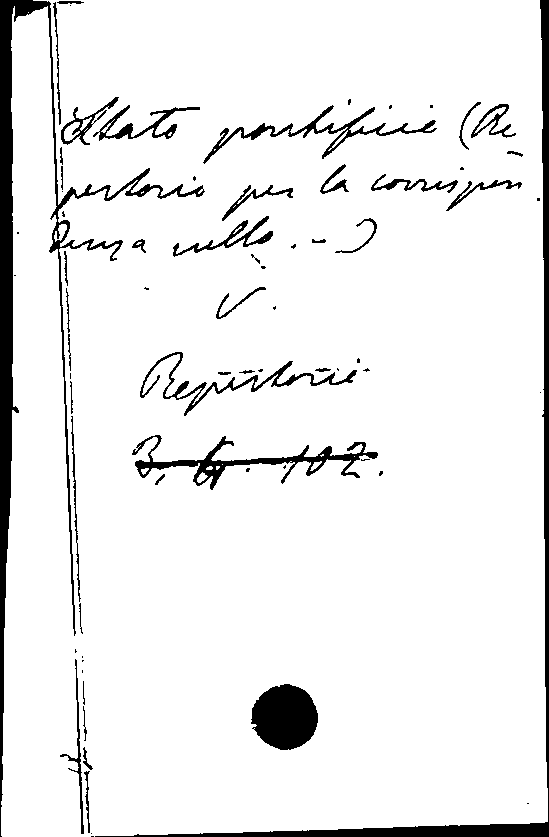 Stato pontificio (Re
pertorio per la corrispon
denza nello . - )
V.
Repertorio
B. G. 102.